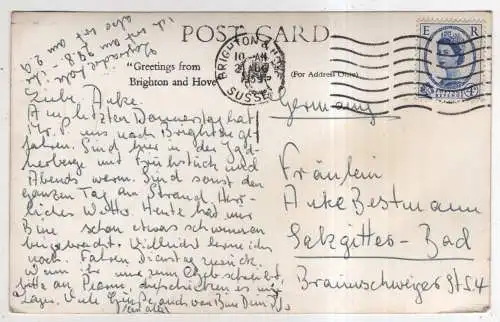 POST CARD
"Greetings from
Brighton and Hove"
(For Address Only)
BRIGHTON & HOVE
10-
SUSSEX
E R
POSTAGE REVENUE
Germany
Liebe Anke.
Am letzten Donnerstag hat
Mr. P. uns nach Brighton ge-
fahren. Sind hier in der Jgd-
herberge mit Frühstück und
Abends warm. Sind sonst den
ganzen Tag am Strand. Herr-
liches Wetter. Heute hat mir
Bine schon etwas schwimmen
beigebracht. Vielleicht lerne ichs
noch. Fahren Dienstag zurück.
Wenn ihr uns zum schreibt,
bitte an Pearns, schicken es ins
Lager. Viele Grüße auch von Bine Dein
Fräulein
Anke Bestmann
Salzgitter-Bad
Braunschweiger Str. 4